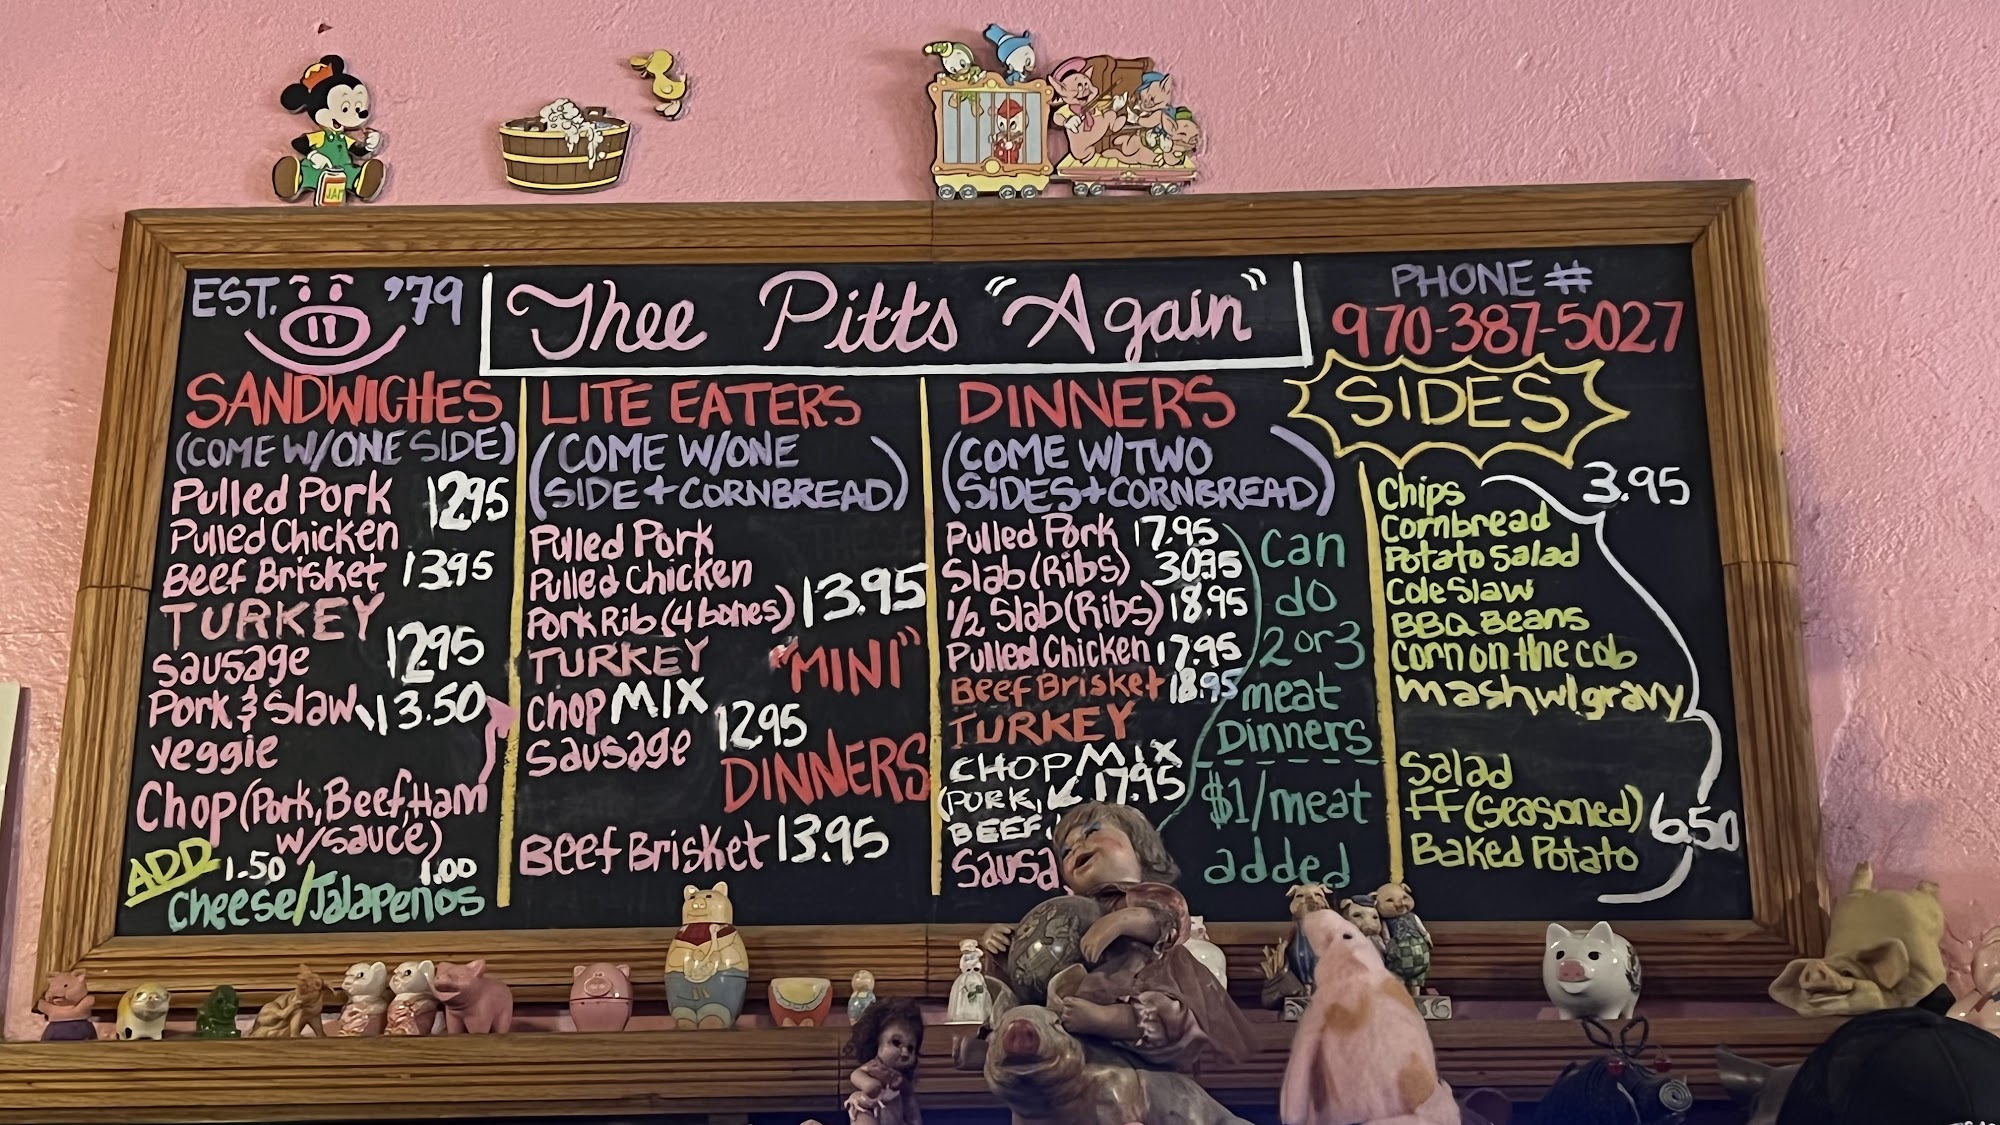 JAM
EST. '79
Thee Pitts "Again"
PHONE #
970-387-5027
SANDWICHES
(COME W/ONE SIDE)
Pulled Pork 12.95
Pulled Chicken
Beef Brisket 13.95
TURKEY
Sausage 12.95
Pork & Slaw 13.50
veggie
Chop (Pork, Beef, Ham
w/sauce)
ADD 1.50 1.00
Cheese/Jalapenos
LITE EATERS
(COME W/ONE
SIDE + CORNBREAD)
Pulled Pork
Pulled Chicken
Pork Rib (4 bones) 13.95
TURKEY "MINI"
Chop MIX
Sausage 12.95
DINNERS
Beef Brisket 13.95
DINNERS
(COME W/TWO
SIDES + CORNBREAD)
Pulled Pork 17.95
Slab (Ribs) 30.95
1/2 Slab (Ribs) 18.95
Pulled Chicken 17.95
Beef Brisket 18.95
TURKEY
CHOP MIX
(PORK, 17.95
BEEF,
Sausa
Can
do
2 or 3
meat
Dinners
$1/meat
added
SIDES
Chips 3.95
Cornbread
Potato Salad
Cole Slaw
BBQ Beans
Corn on the cob
mash w/gravy
Salad
FF (Seasoned) 6.50
Baked Potato